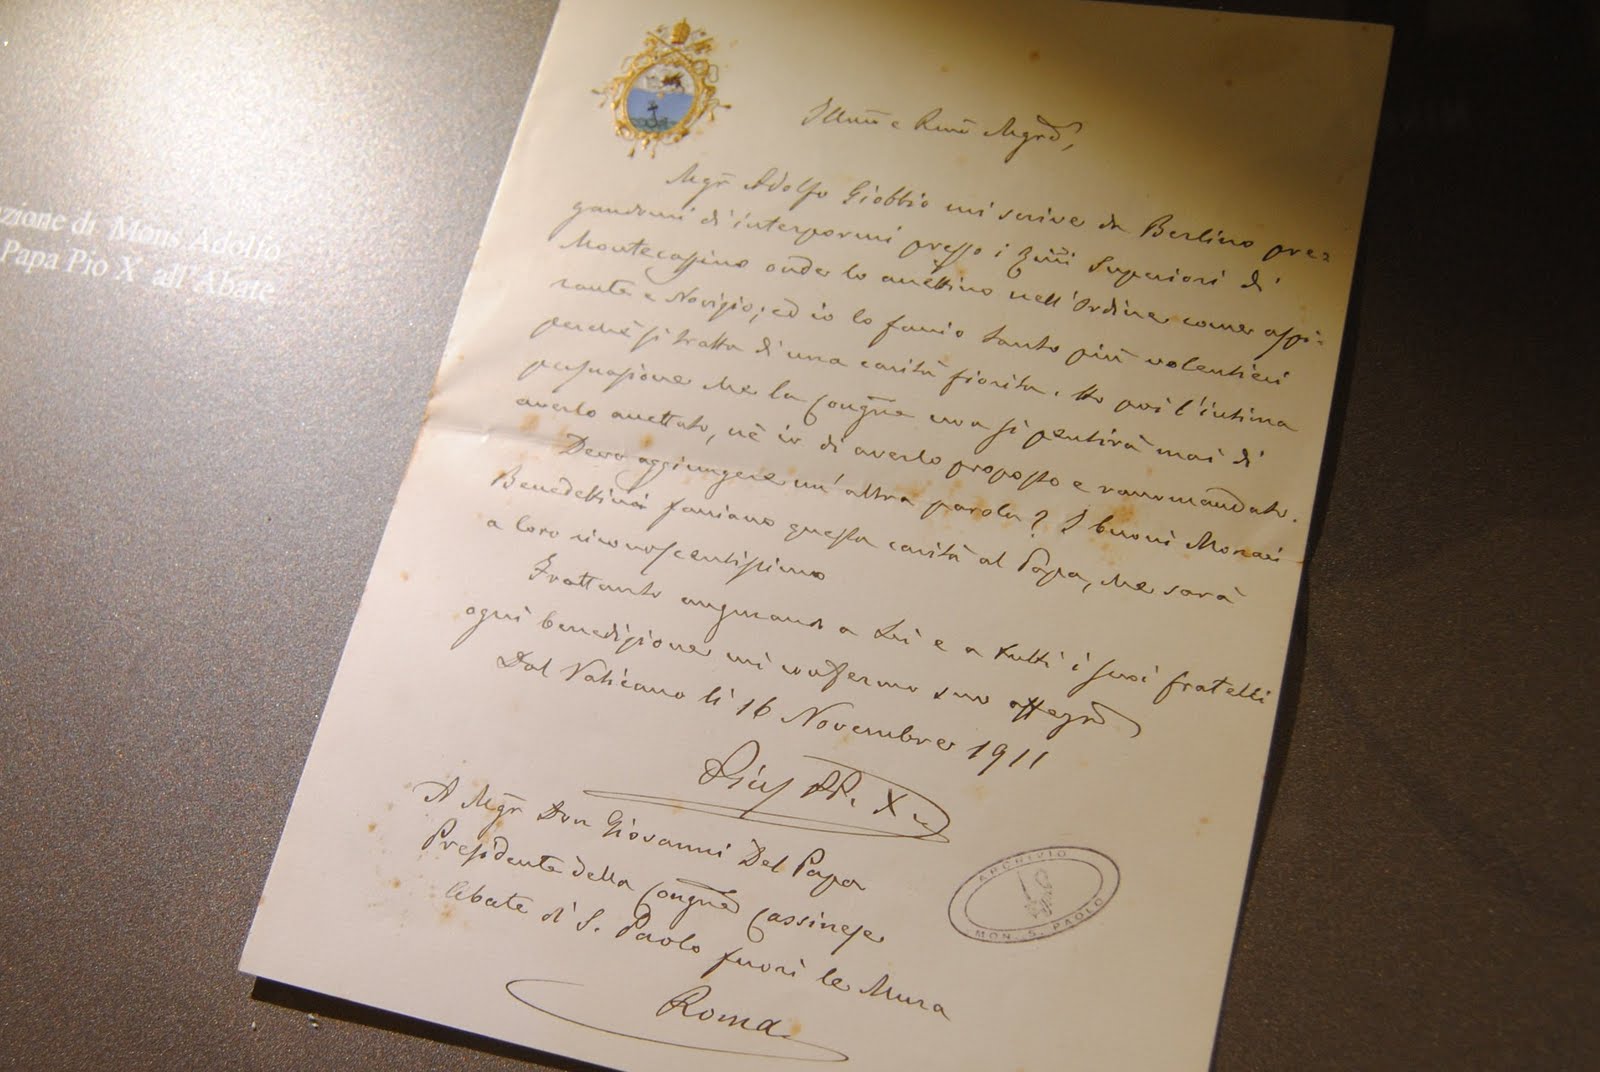 azione di Mons Adolfo
Papa Pio X all'Abate
Illmo e Rmo Mgre,
Mgr Adolfo Giobbio mi scrive da Berlino pre=
gandomi di interpormi presso i Rmi Superiori di
Montecassino onde lo accettino nell'Ordine come aspi-
rante e Novizio; ed io lo faccio tanto più volentieri
perchè si tratta di una carità fiorita. Ho poi l'intima
persuasione che la Congne non si pentirà mai di
averlo accettato, nè io di averlo proposto e raccomandato.
Devo aggiungere un'altra parola? I buoni Monaci
Benedettini facciano questa carità al Papa, che sarà
a loro riconoscentissimo
Frattanto augurando a Lei e a tutti i suoi fratelli
ogni benedizione mi confermo suo affmo
Dal Vaticano li 16 Novembre 1911
Pius PP. X
A Mgr Don Giovanni Del Papa
Presidente della Congne Cassinese
Abate di S. Paolo fuori le Mura
Roma
ARCHIVIO
MON. S. PAOLO